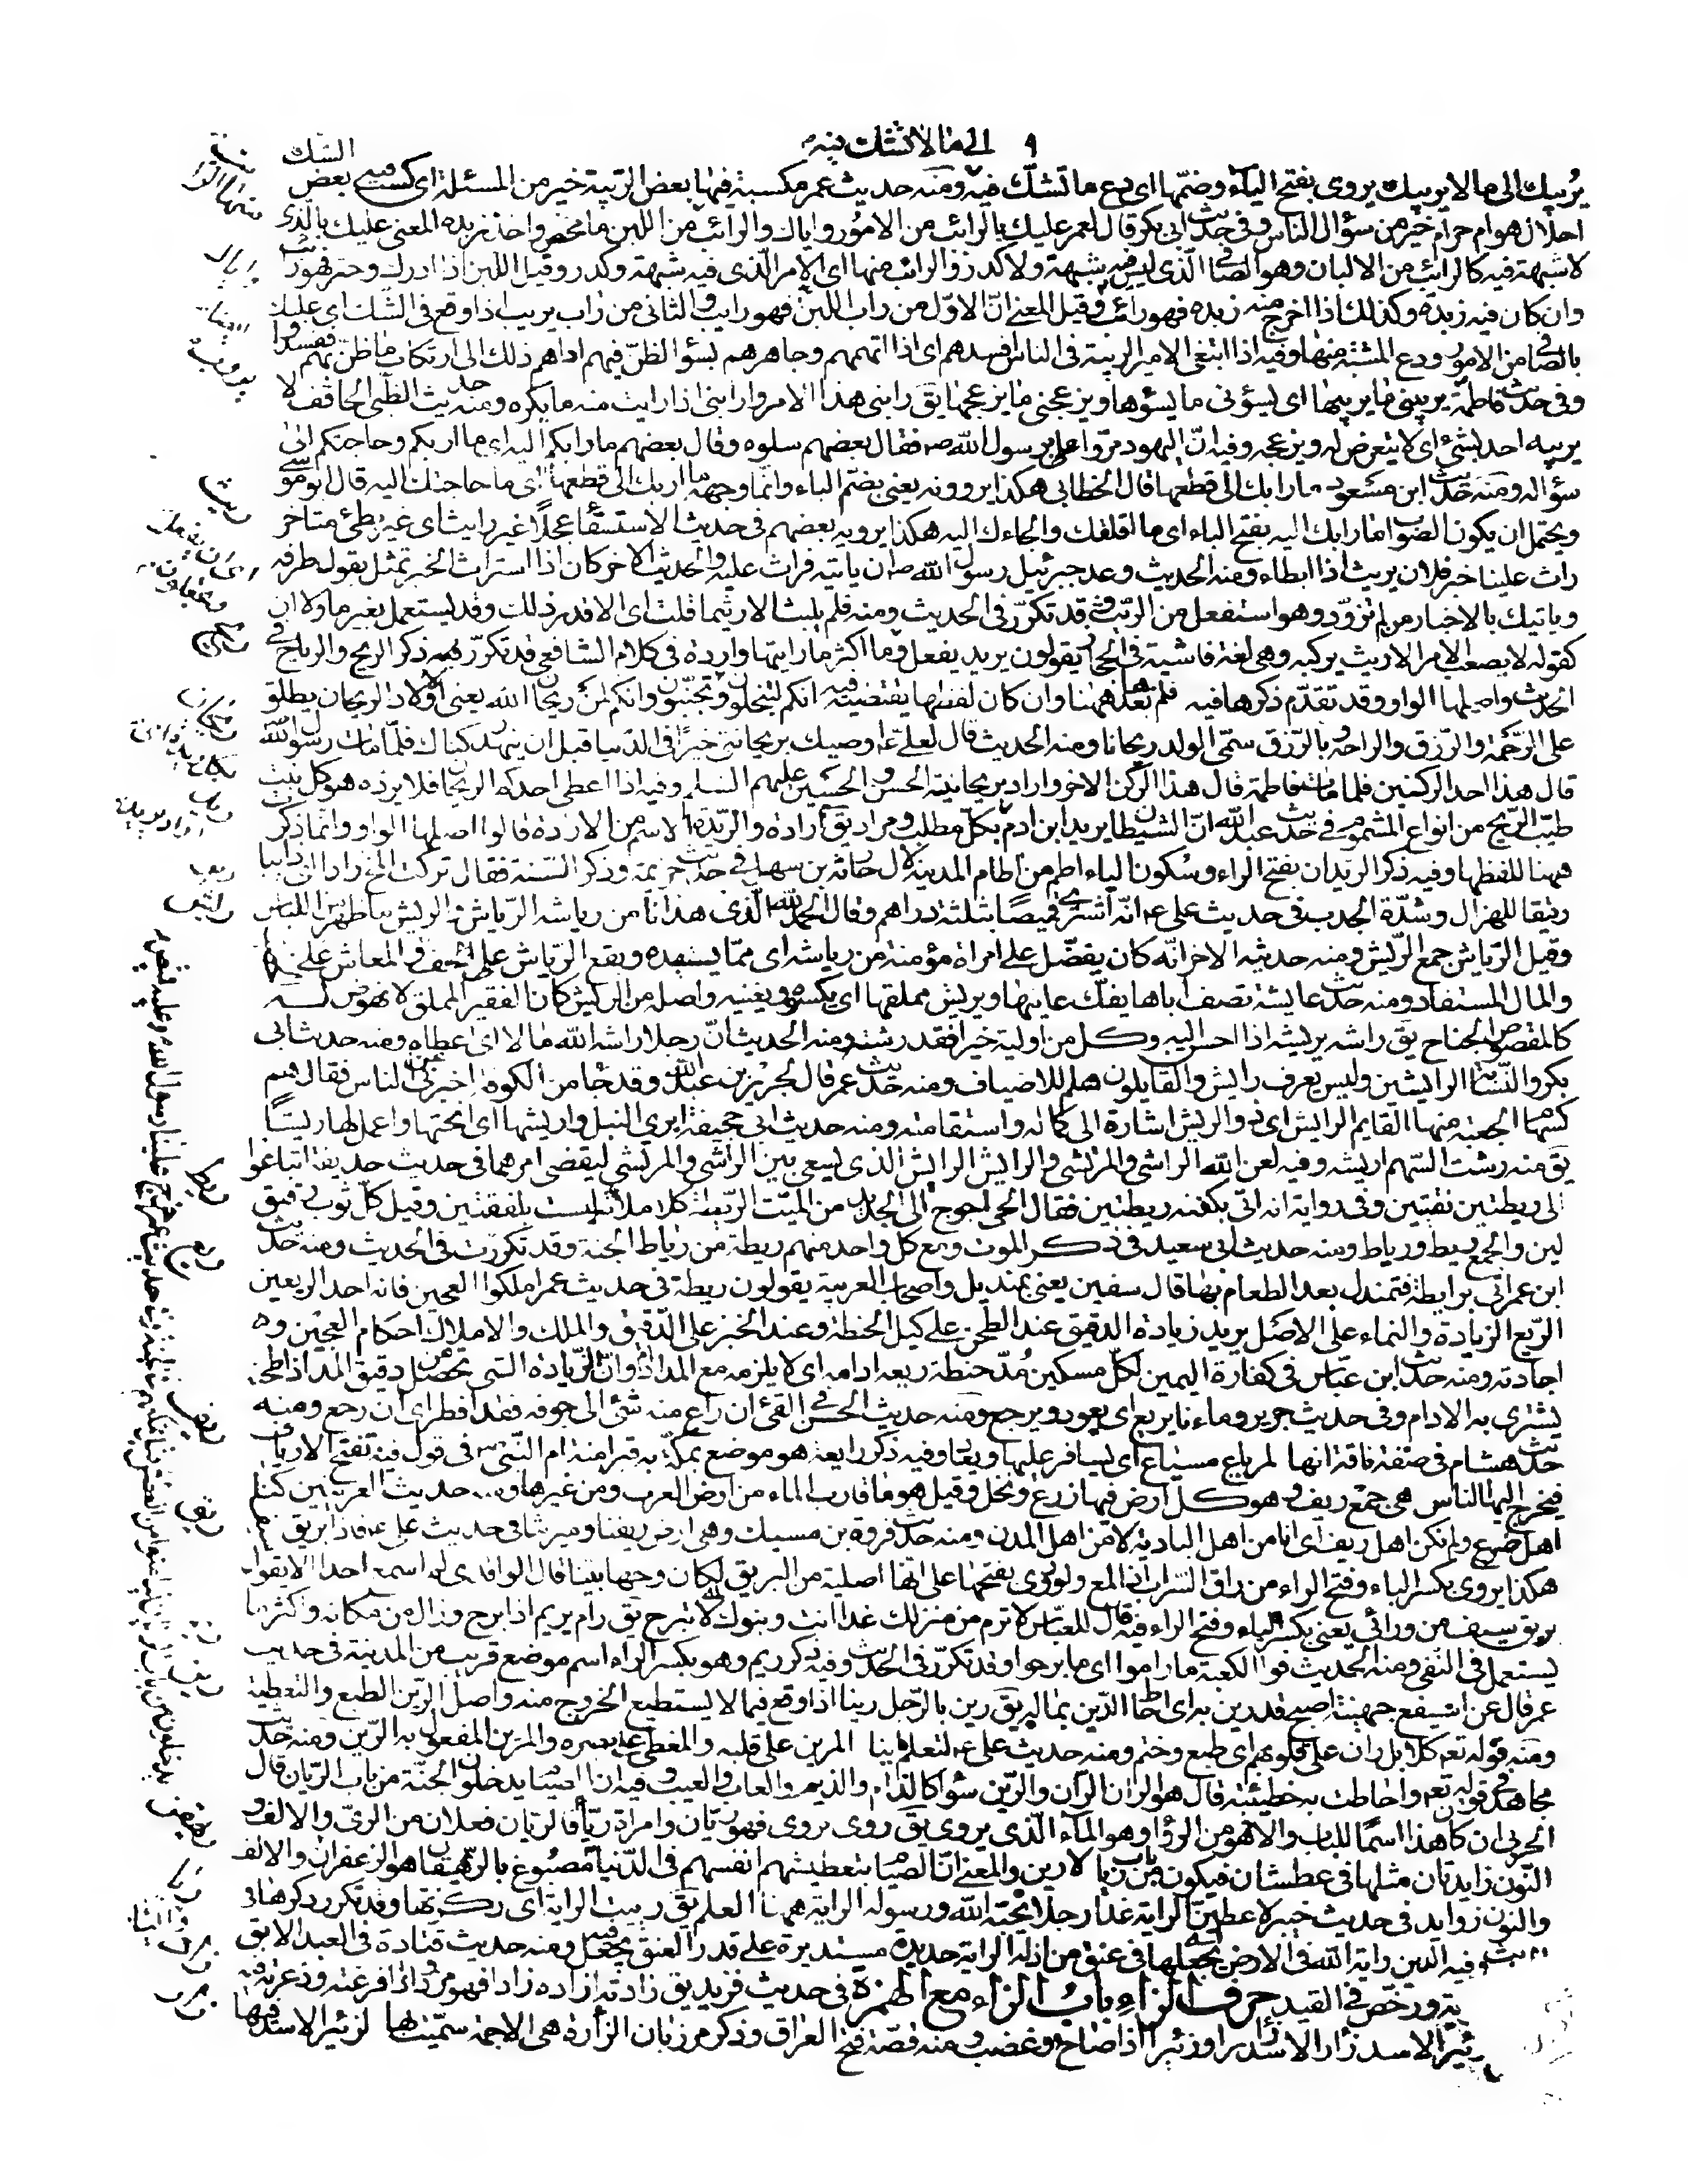 الى ما لا تشك فيه
يُريبك الى ما لا يريبك يروى بفتح الياء وضمّها اى دع ما تشك فيه ومنه حديث عمر مكسبة فيها بعض الريبة خير من المسئلة اى كسب فيه بعض الشك
احلال هو ام حرام خير من سؤال الناس وفى حديث ابى بكر قال لعمر عليك بالرائب من الامور واياك والرائب منها الرائب من اللبن ما مخض واخذ زبده المعنى عليك بالذى
لا شبهة فيه كالرائب من الالبان وهو الصافى الذى ليس فيه شبهة ولا كدر واياك والرائب منها اى الامر الذى فيه شبهة وكدر وقيل اللبن اذا ادرك وخثر فهو رائب
وان كان فيه زبده وكذلك اذا اخرج منه زبده فهو رائب وقيل المعنى انّ الاوّل من راب اللبن فهو رايب والثانى من راب يريب اذا وقع فى الشك اى عليك
بالصافى من الامور ودع المشتبه منها وفيه اذا ابتغى الامير الريبة فى الناس افسدهم اى اذا اتهمهم وجاهرهم بسؤ الظنّ فيهم اداهم ذلك الى ارتكاب ما ظنّ بهم ففسدوا
وفى حديث فاطمة يريبنى ما يريبها اى يسؤنى ما يسؤها ويزعجنى ما يزعجها يق رابنى هذا الامر وارابنى اذا رايت منه ما يكره ومنه حديث الظبى الحاقف لا
يريبه احد بشئ اى لا يتعرض له ويزعجه وفيه انّ اليهود مرّوا على رسول الله ص فقال بعضهم سلوه وقال بعضهم ما رابكم اليه اى ما اربكم وحاجتكم الى
سؤاله ومنه حديث ابن مسعود ما رابك الى قطعها قال الخطابى هكذا يروونه يعنى بضمّ الباء وانما وجهه ما اربك الى قطعها اى ما حاجتك اليه قال ابو موسى
ويحتمل ان يكون الصواب ما رابك اليه بفتح الباء اى ما اقلقك والجاءك اليه هكذا يرويه بعضهم فى حديث الاستسقا عجلًا غير رايث اى غير بطئ متاخر
راث علينا خبر فلان يريث اذا ابطاء ومنه الحديث وعد جبرئيل رسول الله ص ان ياتيه فراث عليه والحديث الاخر كان اذا استراث الخبر تمثل بقول طرفه
وياتيك بالاخبار من لم تزوّد وهو استفعل من الريث وقد تكرّر فى الحديث ومنه فلم يلبث الا ريثما قلت اى الا قدر ذلك وقد يستعمل بغير ما ولا ان
كقوله لا يصعب الامر الا ريث يركبه وهى لغة فاشية فى الحجاز يقولون يريد يفعل وما اكثر ما رايتها واردة فى كلام الشافعى قد تكرّر فيه ذكر الريح والرياح فى
الحديث واصلها الواو وقد تقدّم ذكرها فيه فلم نعدها ههنا وان كان لفظها يقتضيه فيه انكم لتبخلون وتجبنون وانكم لمن ريحان الله يعنى الاولاد الريحان يطلق
على الرحمة والرزق والراحة وبالرزق سمّى الولد ريحانا ومنه الحديث قال لعلى ع اوصيك بريحانتى خيرًا فى الدنيا قبل ان ينهد ركناك فلمّا مات رسول الله
قال هذا احد الركنين فلما ماتت فاطمة قال هذا الركن الاخر واراد بريحانتيه الحسن والحسين عليهم السلم وفيه اذا اعطى احدكم الريحان فلا يرده هو كل نبت
طيّب الريح من انواع المشموم فى حديث عبد الله انّ الشيطان يريد ابن ادم بكلّ مطلب ومراد يق اراده والريدة الاسم من الارادة قالوا اصلها الواو وانما ذكر
ههنا للفظها وفيه ذكر الريدان بفتح الراء وسكون الياء اطم من اطام المدينة لآل حارثة بن سهل فى حديث خزيمة وذكر السنة فقال تركت المخ رارا اى ذايبا
رقيقا للهزال وشدّة الجدب فى حديث على ع انّه اشترى قميصًا بثلثة دراهم وقال الحمد لله الذى هذا من رياشه الرياش والريش ما ظهر من اللباس
وقيل الرياش جمع الريش ومنه حديثه الاخر انّه كان يفضّل على امراة مؤمنة من رياشه اى ممّا يستفيده ويقع الرياش على الخصب والمعاش
والمال المستفاد ومنه حديث عايشة تصف اباها يفكّ عانيها ويريش مملقها اى يكسوه ويعينه واصله من الريش كان الفقير المملق لا نهوض له
كالمقصوص الجناح يق راشه يريشه اذا احسن اليه وكل من اوليته خيرا فقد رشته ومنه الحديث انّ رجلا راشه الله مالا اى اعطاه ومنه حديث ابى
بكر والنسابة الرايشين وليس يعرف رايش والقايلون هلم للاضياف ومنه حديث عمر قال لجرير بن عبد الله وقد جا من الكوفة اخبرنى عن الناس فقال هم
كسهام الجعبة منها القايم الرايش اى ذو الريش اشارة الى كماله واستقامته ومنه حديث ابى جحيفة ابرى النبل واريشها اى انحتها واعمل لها ريشًا
يق منه رشت السهم اريشه وفيه لعن الله الراشى والمرتشى والرايش الرايش الذى يسعى بين الراشى والمرتشى ليقضى امرهما فى حديث حذيفة ابتاعوا
لى ريطتين نقيتين وفى رواية انه اتى بكفنه ريطتين فقال الحى احوج الى الجديد من الميت الريطة كل ملاءة ليست بلفقتين وقيل كلّ ثوب رقيق
لين والجمع ريط ورياط ومنه حديث ابى سعيد فى ذكر الموت ومع كل واحد منهم ريطة من رياط الجنة وقد تكررت فى الحديث ومنه حديث
ابن عمر اتى برايطة فتمندل بعد الطعام بها قال سفين يعنى بمنديل واصحاب العربية يقولون ريطة فى حديث عمر املكوا العجين فانه احد الريعين
الريع الزيادة والنماء على الاصل يريد زيادة الدقيق عند الطحن على كيل الحنطة وعند الخبز على الدقيق والملك والاملاك احكام العجين و
اجادته ومنه حديث ابن عبّاس فى كفارة اليمين لكلّ مسكين مُدّ حنطة ريعه ادامه اى لا يلزمه مع المد ادام وانّ الزيادة التى تحصل من دقيق المد اذا طحن
يشترى به الادام وفى حديث جرير وماءنا يريع اى يعود ويرجع ومنه حديث الحسن فى القئ ان راع منه شئ الى جوفه فقد افطر اى ان رجع ومنه
حديث هشام فى صفة ناقة انها لمرياع مسياع اى يسافر عليها ويعاد وفيه ذكر رايعة هو موضع بمكّة به قبر امنة ام النبى ص فى قول فيه تفتح الارياف
فيخرج اليها الناس هى جمع ريف وهو كل ارض فيها زرع ونخل وقيل هو ما قارب الماء من ارض العرب ومن غيرها ومنه حديث العرنيين كنا
اهل ضرع ولم نكن اهل ريف اى انا من اهل البادية لا من اهل المدن ومنه حديث فروة بن مسيك وهى ارض ريفنا وميرتنا فى حديث على ع فاذا بريق
هكذا يروى بكسر الباء وفتح الراء من راق السراب اذا لمع ولو روى بفتحها على انها اصلية من البريق لكان وجها بينا قال الواقدى لم اسمع احدا الا يقول
بريق سيف من ورائى يعنى بكسر الباء وفتح الراء فيه قال للعبّاس لا ترم من منزلك غدا انت وبنوك اى لا تبرح يق رام يريم اذا برح وزال من مكانه واكثر ما
يستعمل فى النفى ومنه الحديث فوا الكعبة ما راموا اى ما برحوا وقد تكرّر فى الحديث وفيه ذكر ريم وهو بكسر الراء اسم موضع قريب من المدينة فى حديث
عمر قال عن اسيفع جهينة اصبح قد رين به اى احاط الدين بماله يق رين بالرجل رينا اذا وقع فيما لا يستطيع الخروج منه واصل الرين الطبع والتغطية
ومنه قوله تع كلا بل ران على قلوبهم اى طبع وختم ومنه حديث على ع لتعلم اينا المرين على قلبه والمغطى على بصره والمرين المفعول به الرين ومنه حديث
مجاهد فى قوله تع واحاطت به خطيئته قال هو الران الران والرين سواء كالذام والذيم والعاب والعيب وفيه ان الصيام يدخلون الجنّة من باب الريّان قال
الحربى ان كان هذا اسمًا للباب والا فهو من الرواء وهو الماء الذى يروى يق روى يروى فهو ريّان وامراة ريّا فالريّان فعلان من الرىّ والالف و
النّون زايدتان مثلها فى عطشان فيكون من باب ريا لا رين والمعنى انّ الصيام بتعطيشهم انفسهم فى الدّنيا مصبوغ بالريهقان هو الزعفران والالف
والنون زوايد فى حديث خيبر لاعطينّ الراية غدا رجلا يحبّه الله ورسوله الراية ههنا العلم يق ريّيت الراية اى ركزتها وقد تكرر ذكرها فى
الحديث وفيه الدين راية الله فى الارض يجعلها فى عنق من اذلّه الراية حديدة مستديرة على قدر العنق يجعل فيه ومنه حديث قتادة فى العبد الابق
يته ورخّص فى القيد حرف الزاء باب الزاء مع الهمزة فى حديث فزيد يق زادته ازاده زادا فهو مزؤد اذا افزعته وذعرته فيه
زئير الاسد زار الاسد يزار زارا وزئيرا اذا صاح وغضب ومنه قصّة فتح العراق وذكر مرزبان الزأرة هى الاجمة سمّيت بها لزئير الاسد فيها
ريث
ريح
ريحان
ريد
رير
ريش
ريط
ريع
ريف
ريق
ريم
رين
ريهق
ريا